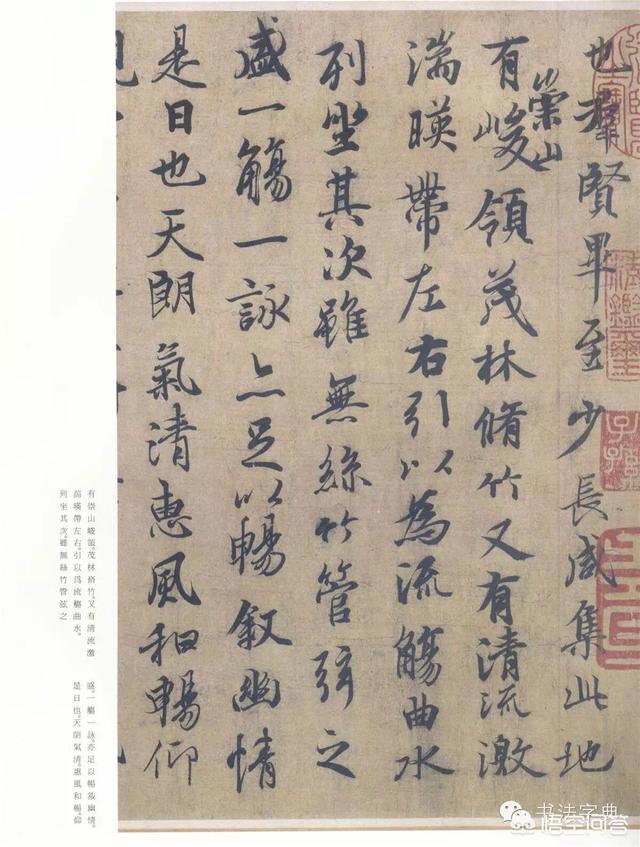 也羣賢畢至少長咸集此地
有崇山峻領茂林脩竹又有清流激
湍暎帶左右引以為流觴曲水
列坐其次雖無絲竹管弦之
盛一觴一詠亦足以暢敘幽情
是日也天朗氣清惠風和暢仰
有崇山峻領。茂林脩竹。又有清流激
湍暎帶左右。引以爲流觴曲水。
列坐其次。雖無絲竹管弦之
盛。一觴一詠。亦足以暢敘幽情。
是日也。天朗氣清。惠風和暢。仰
书法字典
悟空问答